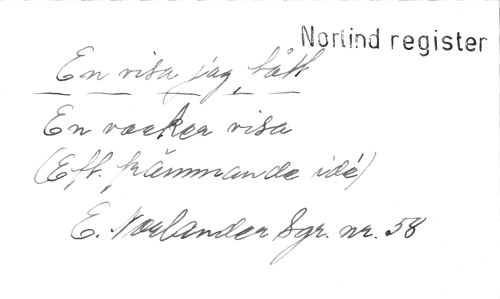 Norlind register
En visa jag fått
En vacker visa
(Eft. främmande idé)
E. Norlander Sgr. nr. 58